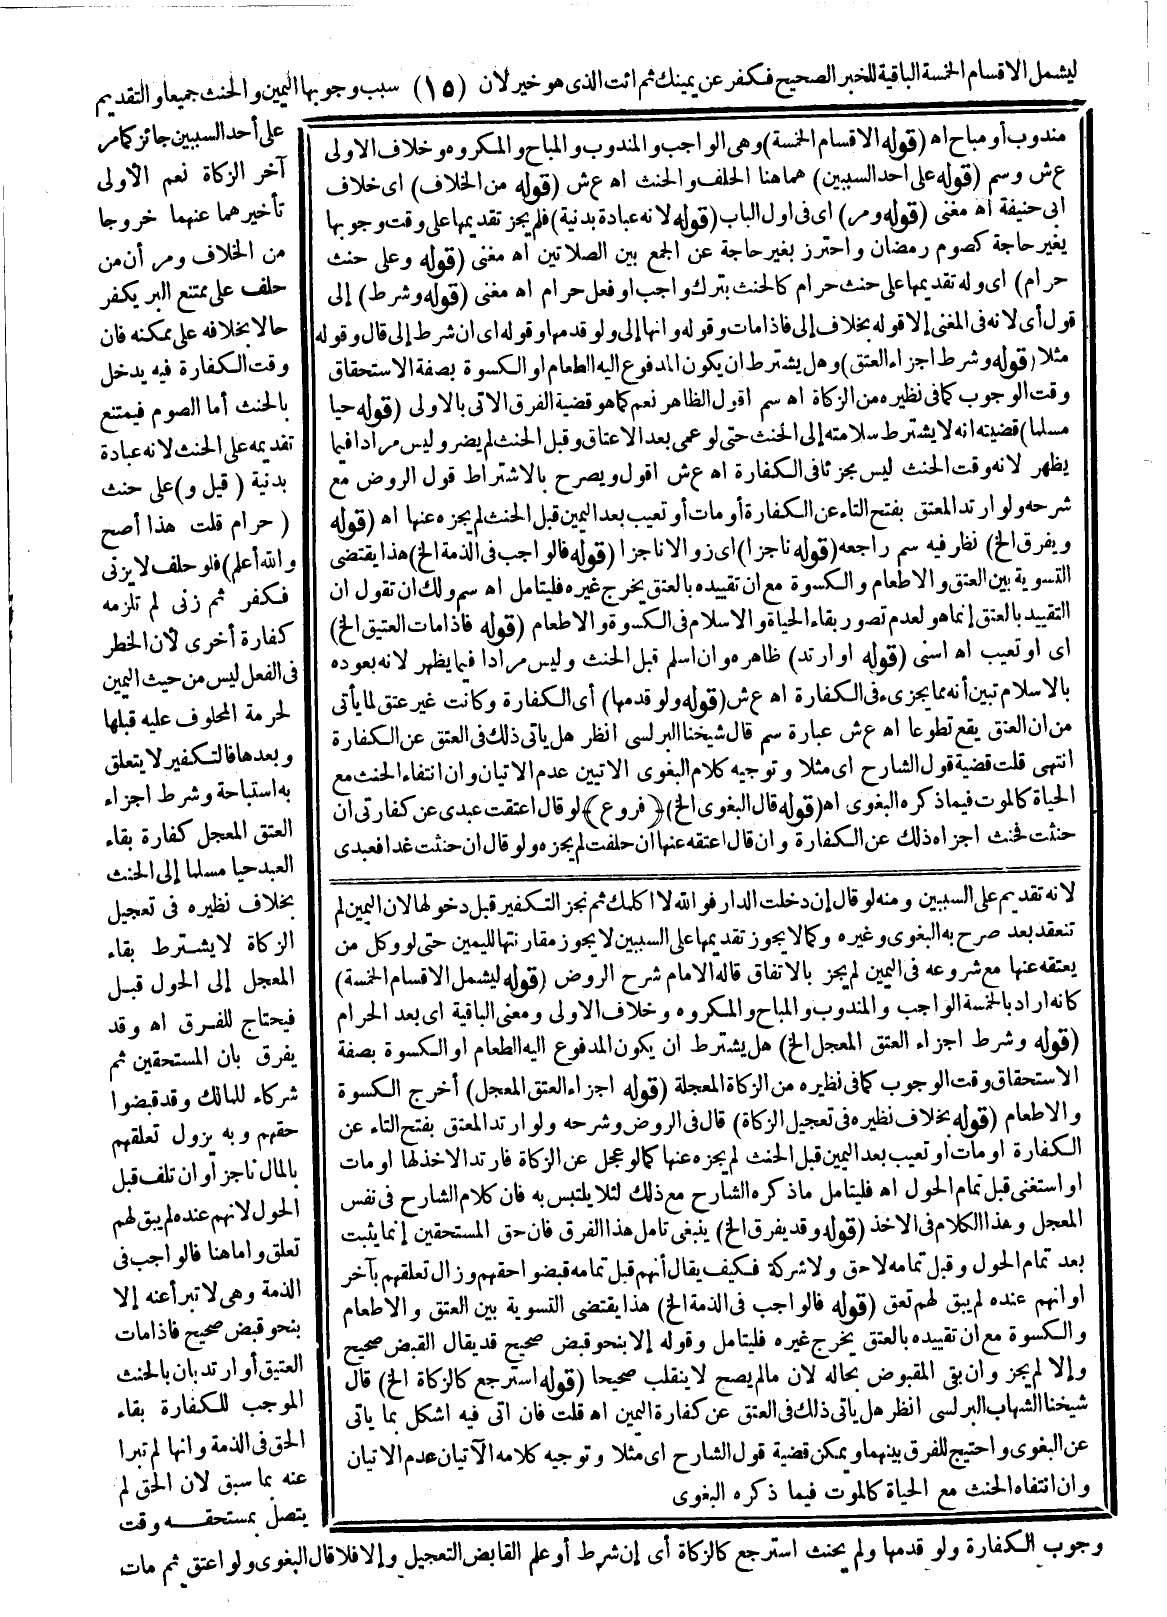 ليشمل الاقسام الخمسة الباقية للخبر الصحيح فكفر عن يمينك ثم ائت الذى هو خير لان (١٥) سبب وجوبها اليمين والحنث جميعا والتقديم
على أحد السببين جائز كما مر
آخر الزكاة نعم الأولى
تأخيرهما عنهما خروجا
من الخلاف ومر أن من
حلف على ممتنع البر يكفر
حالا بخلافه على ممكنه فان
وقت الكفارة فيه يدخل
بالحنث أما الصوم فيمتنع
تقديمه على الحنث لانه عبادة
بدنية (قيل و) على حنث
(حرام قلت هذا أصح
والله أعلم) فلو حلف لا يزنى
فكفر ثم زنى لم تلزمه
كفارة أخرى لأن الخطر
فى الفعل ليس من حيث اليمين
لحرمة المحلوف عليه قبلها
وبعدها فالتكفير لا يتعلق
به استباحة وشرط اجزاء
العتق المعجل كفارة بقاء
العبد حيا مسلما إلى الحنث
بخلاف نظيره فى تعجيل
الزكاة لا يشترط بقاء
المعجل إلى الحول قبل
فيحتاج للفرق اه وقد
يفرق بان المستحقين ثم
شركاء للمالك وقد قبضوا
حقهم وبه يزول تعلقهم
بالمال ناجزا وان تلف قبل
الحول لانهم عنده لم يبق لهم
تعلق واما هنا فالواجب فى
الذمة وهى لا تبرأ عنه إلا
بنحو قبض صحيح فاذا مات
العتيق أو ارتد بان بالحنث
الموجب للكفارة بقاء
الحق فى الذمة وانها لم تبرا
عنه بما سبق لان الحق لم
يتصل بمستحقه وقت
وجوب الكفارة ولو قدمها ولم يحنث استرجع كالزكاة أى إن شرط أو علم القابض التعجيل وإلا فلا قال البغوى ولو اعتق ثم مات
مندوب أو مباح اه (قوله الاقسام الخمسة) وهى الواجب والمندوب والمباح والمكروه وخلاف الاولى
ع ش وسم (قوله على احد السببين) هما هنا الحلف والحنث اه ع ش (قوله من الخلاف) اى خلاف
ابى حنيفة اه مغنى (قوله ومر) اى فى اول الباب (قوله لانه عبادة بدنية) فلم يجز تقديمها على وقت وجوبها
بغير حاجة كصوم رمضان واحترز بغير حاجة عن الجمع بين الصلاتين اه مغنى (قوله وعلى حنث
حرام) اى وله تقديمها على حنث حرام كالحنث بترك واجب او فعل حرام اه مغنى (قوله وشرط) إلى
قول أى لانه فى المغنى إلا قوله بخلاف إلى فاذا مات وقوله وانها إلى ولو قدمها وقوله اى ان شرط إلى قال وقوله
مثلا (قوله وشرط اجزاء العتق) وهل يشترط ان يكون المدفوع اليه الطعام او الكسوة بصفة الاستحقاق
وقت الوجوب كما فى نظيره من الزكاة اه سم اقول الظاهر نعم كما هو قضية الفرق الآتى بالاولى (قوله حيا
مسلما) قضيته انه لا يشترط سلامته إلى الحنث حتى لو عمى بعد الاعتاق وقبل الحنث لم يضر وليس مرادا فيما
يظهر لانه وقت الحنث ليس مجزئا فى الكفارة اه ع ش اقول ويصرح بالاشتراط قول الروض مع
شرحه ولو ارتد المعتق بفتح التاء عن الكفارة أو مات أو تعيب بعد اليمين قبل الحنث لم يجزه عنها اه (قوله
ويفرق الخ) نظر فيه سم راجعه (قوله ناجزا) اى زوالا ناجزا (قوله فالواجب فى الذمة الخ) هذا يقتضى
التسوية بين العتق والاطعام والكسوة مع ان تقييده بالعتق يخرج غيره فليتامل اه سم ولك ان تقول ان
التقييد بالعتق إنما هو لعدم تصور بقاء الحياة والاسلام فى الكسوة والاطعام (قوله فاذا مات العتيق الخ)
اى او تعيب اه اسنى (قوله او ارتد) ظاهره وان اسلم قبل الحنث وليس مرادا فيما يظهر لانه بعوده
بالاسلام تبين أنه مما يجزىء فى الكفارة اه ع ش (قوله ولو قدمها) أى الكفارة وكانت غير عتق لما يأتى
من ان العتق يقع تطوعا اه ع ش عبارة سم قال شيخنا البرلسى انظر هل يأتى ذلك فى العتق عن الكفارة
انتهى قلت قضية قول الشارح اى مثلا وتوجيه كلام البغوى الاتيين عدم الاتيان وان انتفاء الحنث مع
الحياة كالموت فيما ذكره البغوى اه (قوله قال البغوى الخ) ﴿فروع﴾ لو قال اعتقت عبدى عن كفارتى ان
حنثت فحنث اجزاه ذلك عن الكفارة وان قال اعتقه عنها ان حلفت لم يجزه ولو قال ان حنثت غدا فعبدى
لانه تقديم على السببين ومنه لو قال إن دخلت الدار فوالله لا اكلمك ثم نجز التكفير قبل دخولها لان اليمين لم
تنعقد بعد صرح به البغوى وغيره وكما لا يجوز تقديمها على السببين لا يجوز مقارنتها لليمين حتى لو وكل من
يعتقه عنها مع شروعه فى اليمين لم يجز بالاتفاق قاله الامام شرح الروض (قوله ليشمل الاقسام الخمسة)
كانه اراد بالخمسة الواجب والمندوب والمباح والمكروه وخلاف الاولى ومعنى الباقية اى بعد الحرام
(قوله وشرط اجزاء العتق المعجل الخ) هل يشترط ان يكون المدفوع اليه الطعام او الكسوة بصفة
الاستحقاق وقت الوجوب كما فى نظيره من الزكاة المعجلة (قوله اجزاء العتق المعجل) أخرج الكسوة
والاطعام (قوله بخلاف نظيره فى تعجيل الزكاة) قال فى الروض وشرحه ولو ارتد المعتق بفتح التاء عن
الكفارة او مات او تعيب بعد اليمين قبل الحنث لم يجزه عنها كما لو عجل عن الزكاة فارتد الاخذ لها او مات
او استغنى قبل تمام الحول اه فليتامل ما ذكره الشارح مع ذلك لئلا يلتبس به فان كلام الشارح فى نفس
المعجل وهذا الكلام فى الاخذ (قوله وقد يفرق الخ) ينبغى تامل هذا الفرق فان حق المستحقين إنما يثبت
بعد تمام الحول وقبل تمامه لا حق ولا شركة فكيف يقال أنهم قبل تمامه قبضوا حقهم وزال تعلقهم بآخر
او انهم عنده لم يبق لهم تعق (قوله فالواجب فى الذمة الخ) هذا يقتضى التسوية بين العتق والاطعام
والكسوة مع ان تقييده بالعتق يخرج غيره فليتامل وقوله إلا بنحو قبض صحيح قد يقال القبض صحيح
وإلا لم يجز وان بقى المقبوض بحاله لان ما لم يصح لا ينقلب صحيحا (قوله استرجع كالزكاة الخ) قال
شيخنا الشهاب البرلسى انظر هل يأتى ذلك فى العتق عن كفارة اليمين اه قلت فان اتى فيه اشكل بما ياتى
عن البغوى واحتيج للفرق بينهما ويمكن قضية قول الشارح اى مثلا وتوجيه كلامه الآتيان عدم الاتيان
وان انتفاء الحنث مع الحياة كالموت فيما ذكره البغوى